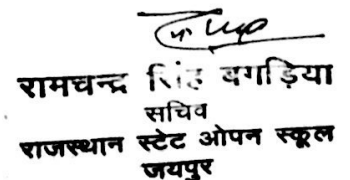 रामचन्द्र सिंह बगड़िया
सचिव
राजस्थान स्टेट ओपन स्कूल
जयपुर